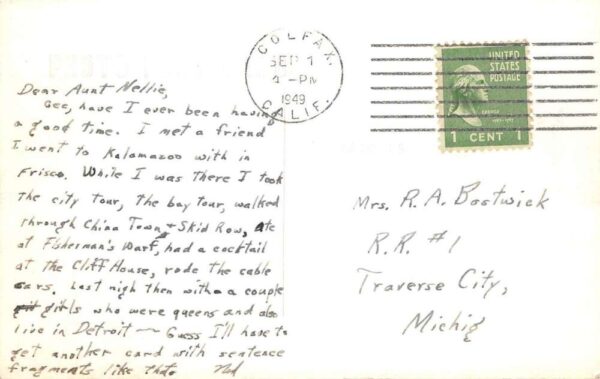 COLFAX,
SEP 1
4-PM
1949
CALIF.
UNITED
STATES
POSTAGE
1 CENT 1
Dear Aunt Nellie,
Gee, have I ever been having
a good time. I met a friend
I went to Kalamazoo with in
Frisco. While I was there I took
the city tour, the bay tour, walked
through China Town, + Skid Row, ate
at Fisherman's Warf, had a cocktail
at the Cliff House, rode the cable
cars. Last nigh then with a couple
girls who were queens and also
live in Detroit — Guess I'll have to
get another card with sentence
fragments like that.
Mrs. R. A. Bostwick
R.R. #1
Traverse City,
Michig